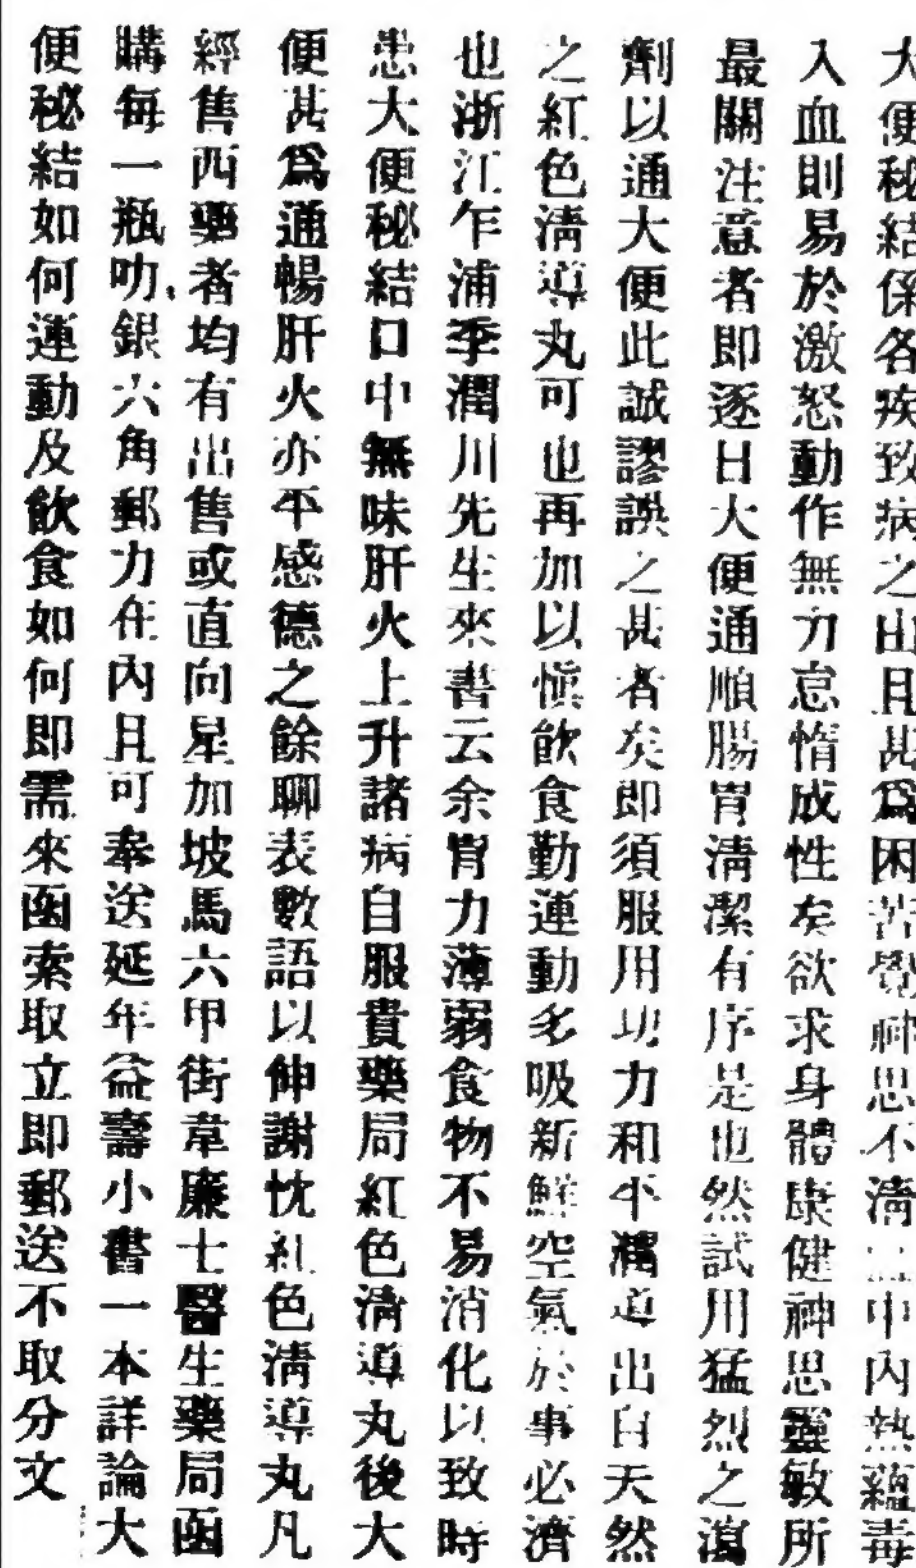 大便秘結係各疾致病之由且甚爲困苦覺神思不淸血中內熱蘊毒
入血則易於激怒動作無力怠惰成性矣欲求身體康健神思靈敏所
最關注意者即逐日大便通順腸胃淸潔有序是也然試用猛烈之瀉
劑以通大便此誠謬誤之甚者矣即須服用功力和平瀉道出自天然
之紅色淸導丸可也再加以愼飮食勤運動多吸新鮮空氣於事必濟
也浙江乍浦季潤川先生來書云余胃力薄弱食物不易消化以致時
患大便秘結口中無味肝火上升諸病自服貴藥局紅色淸導丸後大
便甚爲通暢肝火亦平感德之餘聊表數語以伸謝忱紅色淸導丸凡
經售西藥者均有出售或直向星加坡馬六甲街韋廉士醫生藥局函
購每一瓶叻銀六角郵力在內且可奉送延年益壽小書一本詳論大
便秘結如何運動及飮食如何即需來函索取立即郵送不取分文